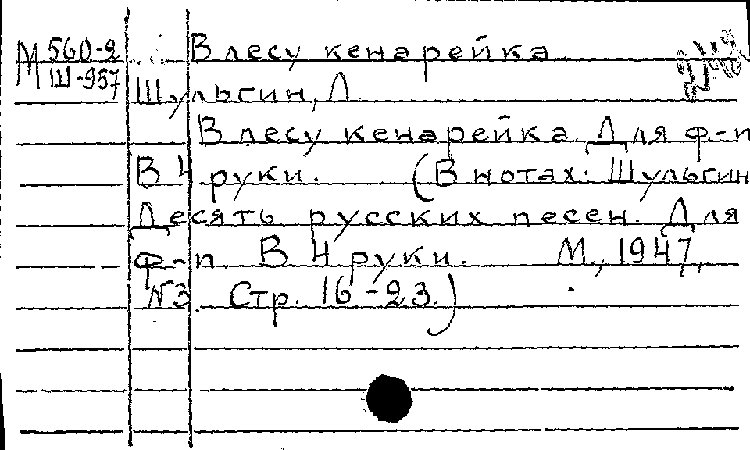 М 560-2 В лесу кенарейка
Ш-957
Шульгин, Л.
В лесу кенарейка. Для ф-п.
В 4 руки. (В нотах: Шульгин
Десять русских песен. Для
ф-п. В 4 руки. М., 1947,
№3. Стр. 16-23.)